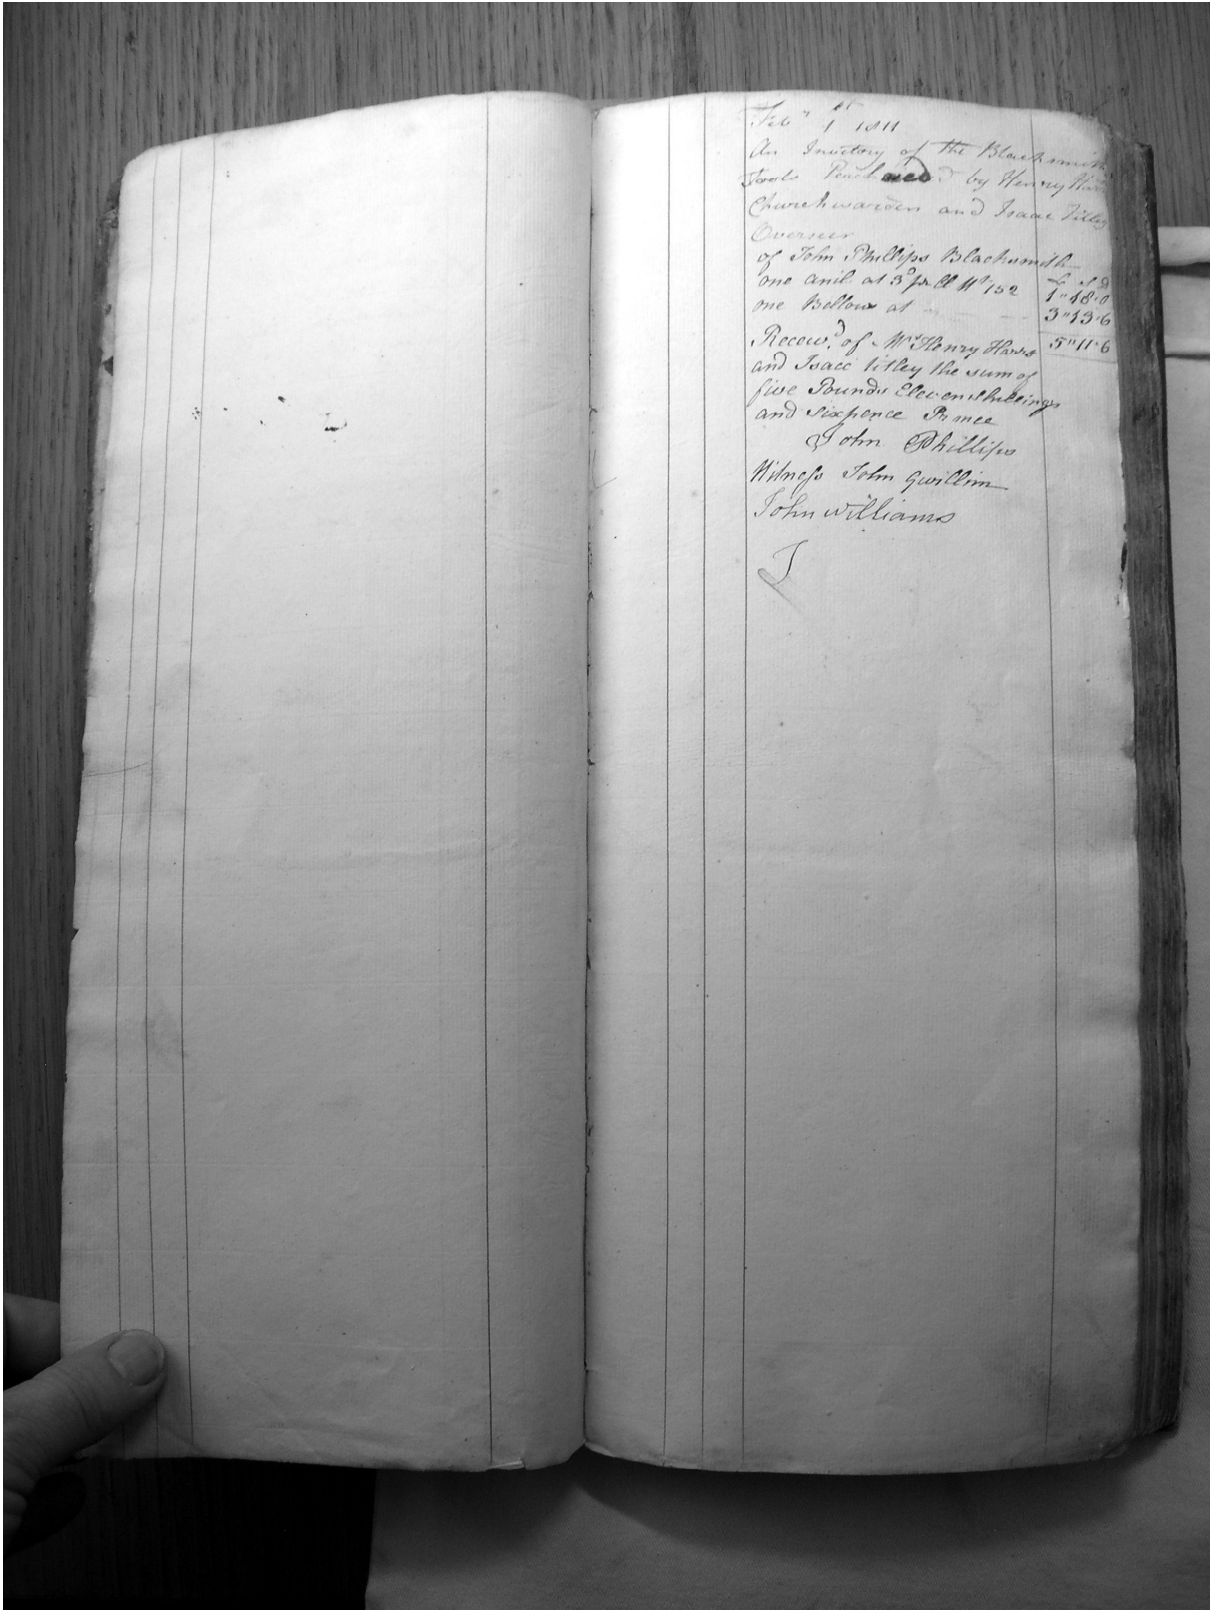 Feby 1st 1811
An Invetory of the Blacksmith
Tools Purchased by Henry Harris
Churchwarden and Isaac Titley
Overseer
of John Phillips Blacksmith
£ s d
one anil at 3d pr ll Wt 152 1"18"0
one Bellows at 3"13"6
5"11"6
Receivd of Mr Henry Harris
and Isacc titley the sum of
five Pounds Eleven shillings
and sixpence
John Phillips
Witness John Gwillim
John Williams
J